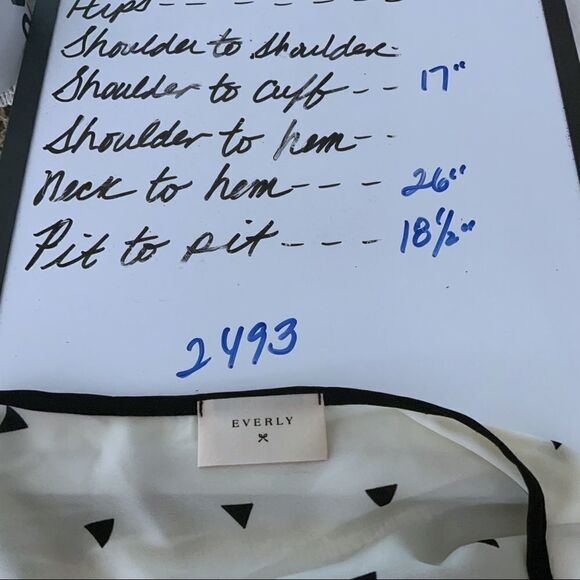 Hips - - - - - - -
Shoulder to shoulder -
Shoulder to cuff - - 17"
Shoulder to hem - -
Neck to hem - - - - 26"
Pit to pit - - - - 18 1/2"
2493
EVERLY